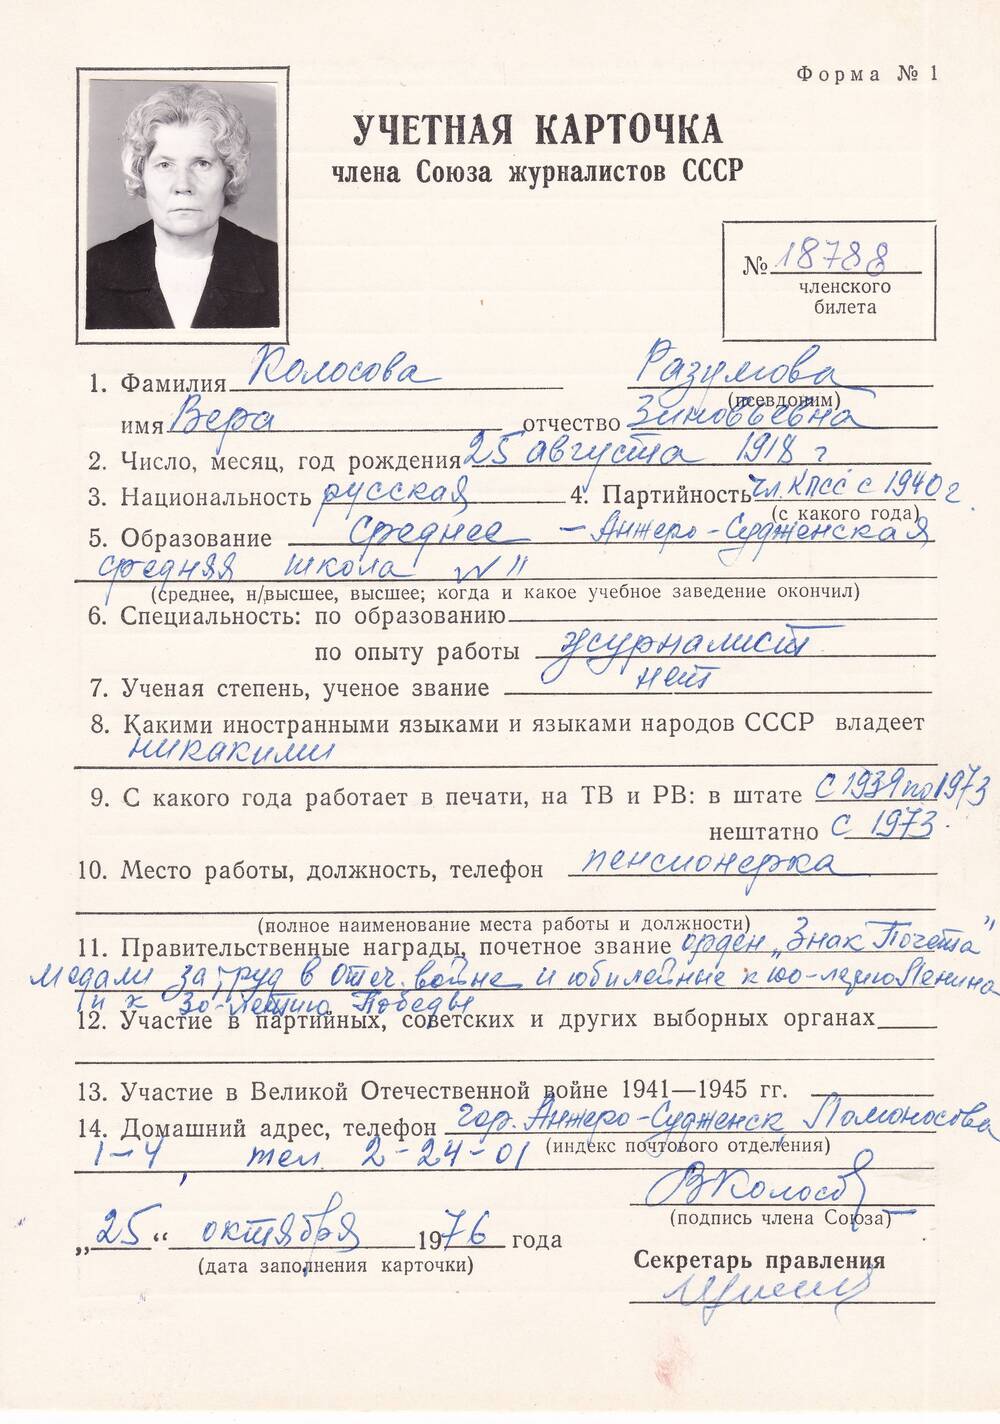 Форма № 1
УЧЕТНАЯ КАРТОЧКА
члена Союза журналистов СССР
№ 18788
членского
билета
1. Фамилия Колосова Разумова
(псевдоним)
имя Вера отчество Зиновьевна
2. Число, месяц, год рождения 25 августа 1918 г
3. Национальность русская 4. Партийность чл. КПСС с 1940 г.
(с какого года)
5. Образование среднее – Анжеро-Судженская
средняя школа № 11
(среднее, н/высшее, высшее; когда и какое учебное заведение окончил)
6. Специальность: по образованию
по опыту работы журналист
7. Ученая степень, ученое звание нет
8. Какими иностранными языками и языками народов СССР владеет
никакими
9. С какого года работает в печати, на ТВ и РВ: в штате С 1939 по 1973
нештатно С 1973.
10. Место работы, должность, телефон пенсионерка
(полное наименование места работы и должности)
11. Правительственные награды, почетное звание орден „Знак Почета"
медали за труд в Отеч. войне и юбилейные к 100-летию Ленина
и к 30-летию Победы
12. Участие в партийных, советских и других выборных органах
13. Участие в Великой Отечественной войне 1941—1945 гг.
14. Домашний адрес, телефон гор. Анжеро-Судженск, Ломоносова
1-4, тел. 2-24-01 (индекс почтового отделения)
ВКолосов
(подпись члена Союза)
„25" октября 1976 года
(дата заполнения карточки)
Секретарь правления